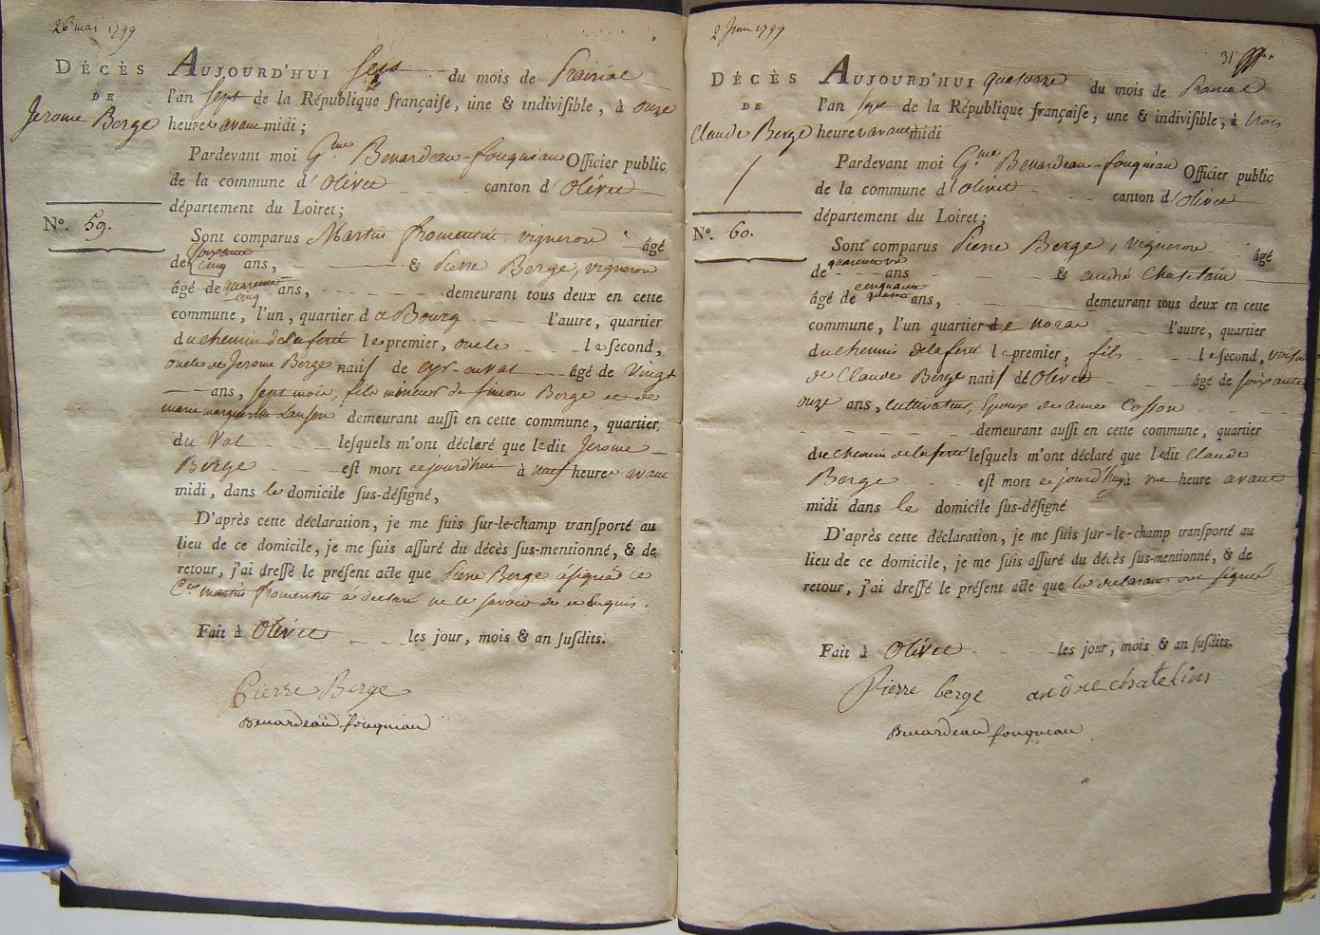 26 mai 1799
DÉCÈS
DE
Jerome Berge
N°. 59.
AUJOURD'HUI sept du mois de Prairial
l'an sept de la République françaiſe, une & indiviſible, à onze
heures avant midi;
Pardevant moi Gme Benardeau-fouqueau Officier public
de la commune d'Olivet canton d'Olivet
département du Loiret;
SONT comparus Martin fromentin vigneron âgé
de soixante cinq ans, & Pierre Berge, vigneron
âgé de quarante cinq ans, demeurant tous deux en cette
commune, l'un, quartier du Bourg l'autre, quartier
du chemin de la ferté le premier, oncle le ſecond,
oncle de Jerome Berge natif de Cyr-en-Val âgé de vingt
ans, sept mois, fils mineur de Simon Berge et de
marie marguerite demeurant auſſi en cette commune, quartier
du Val leſquels m'ont déclaré que ledit Jerome
Berge eſt mort cejourd'hui à neuf heures avant
midi, dans le domicile ſus-déſigné,
D'après cette déclaration, je me ſuis ſur-le-champ tranſporté au
lieu de ce domicile, je me ſuis aſſuré du décès ſus-mentionné, & de
retour, j'ai dreſſé le préſent acte que Pierre Berge a signé le
Cen martin fromentin a déclaré ne le savoir de ce enquis.
Fait à Olivet les jour, mois & an ſuſdits.
Pierre Berge
Benardeau fouqueau
2 Juin 1799
31
DÉCÈS
DE
Claude Berge
N°. 60.
AUJOURD'HUI quatorze du mois de Prairial
l'an sept de la République françaiſe, une & indiviſible, à trois
heures avant midi
Pardevant moi Gme Benardeau-fouqueau Officier public
de la commune d'Olivet canton d'Olivet
département du Loiret;
SONT comparus Pierre Berge, vigneron âgé
de ans & andré Chatelain
âgé de cinquante ans, demeurant tous deux en cette
commune, l'un quartier de l'autre, quartier
du chemin de la ferté le premier, fils le ſecond, voisin
de Claude Berge natif d'Olivet âgé de soixante
onze ans, cultivateur, Epoux de annee Cosson
demeurant auſſi en cette commune, quartier
du chemin de la ferté leſquels m'ont déclaré que ledit Claude
Berge eſt mort cejourd'hui à une heure avant
midi dans le domicile ſus-déſigné
D'après cette déclaration, je me ſuis ſur-le-champ tranſporté au
lieu de ce domicile, je me ſuis aſſuré du décès ſus-mentionné, & de
retour, j'ai dreſſé le préſent acte que les declarans ont signés
Fait à Olivet les jour, mois & an ſuſdits.
Pierre berge andre chatelain
Benardeau fouqueau